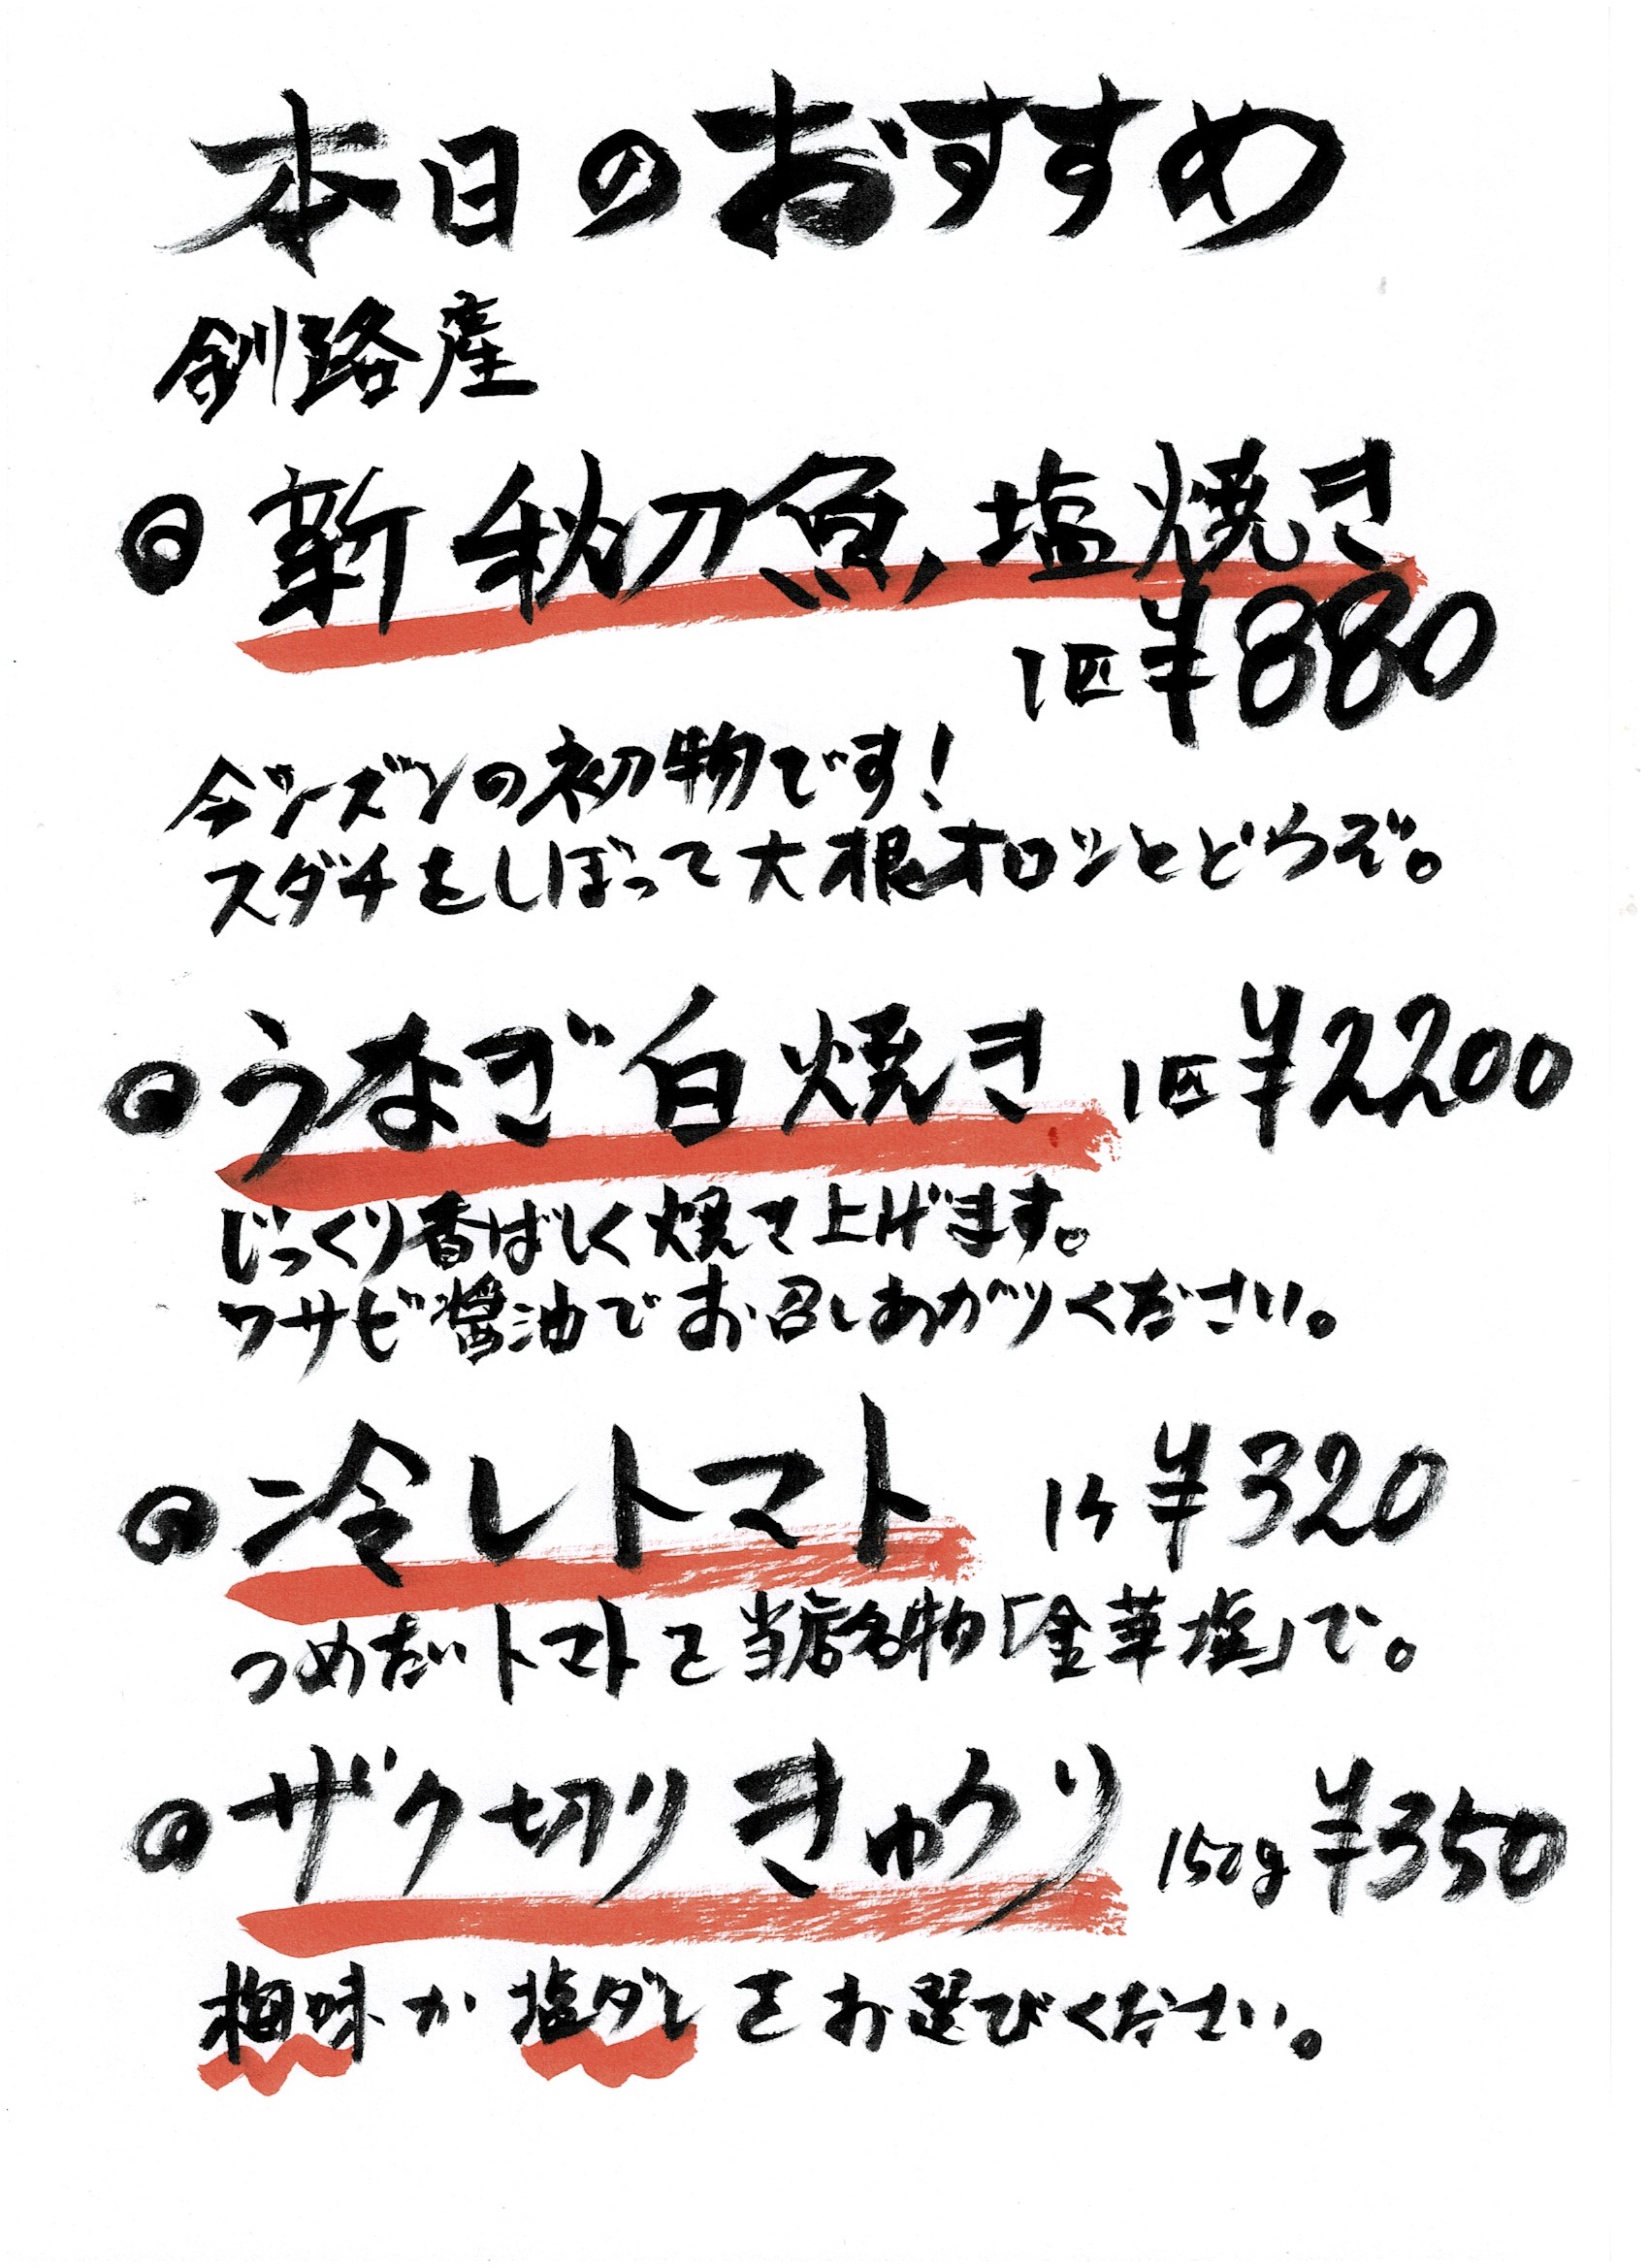 本日のおすすめ
釧路産
◎新秋刀魚塩焼き
1匹¥880
今シーズンの初物です！
スダチをしぼって大根オロシとどうぞ。
◎うなぎ白焼き 1匹¥2200
じっくり香ばしく焼き上げます。
ワサビ醤油でお召しあがりください。
◎冷しトマト 1ケ¥320
つめたいトマトを当店名物「金華塩」で。
◎ザク切りきゅうり 150g¥350
梅味か塩ダレをお選びください。